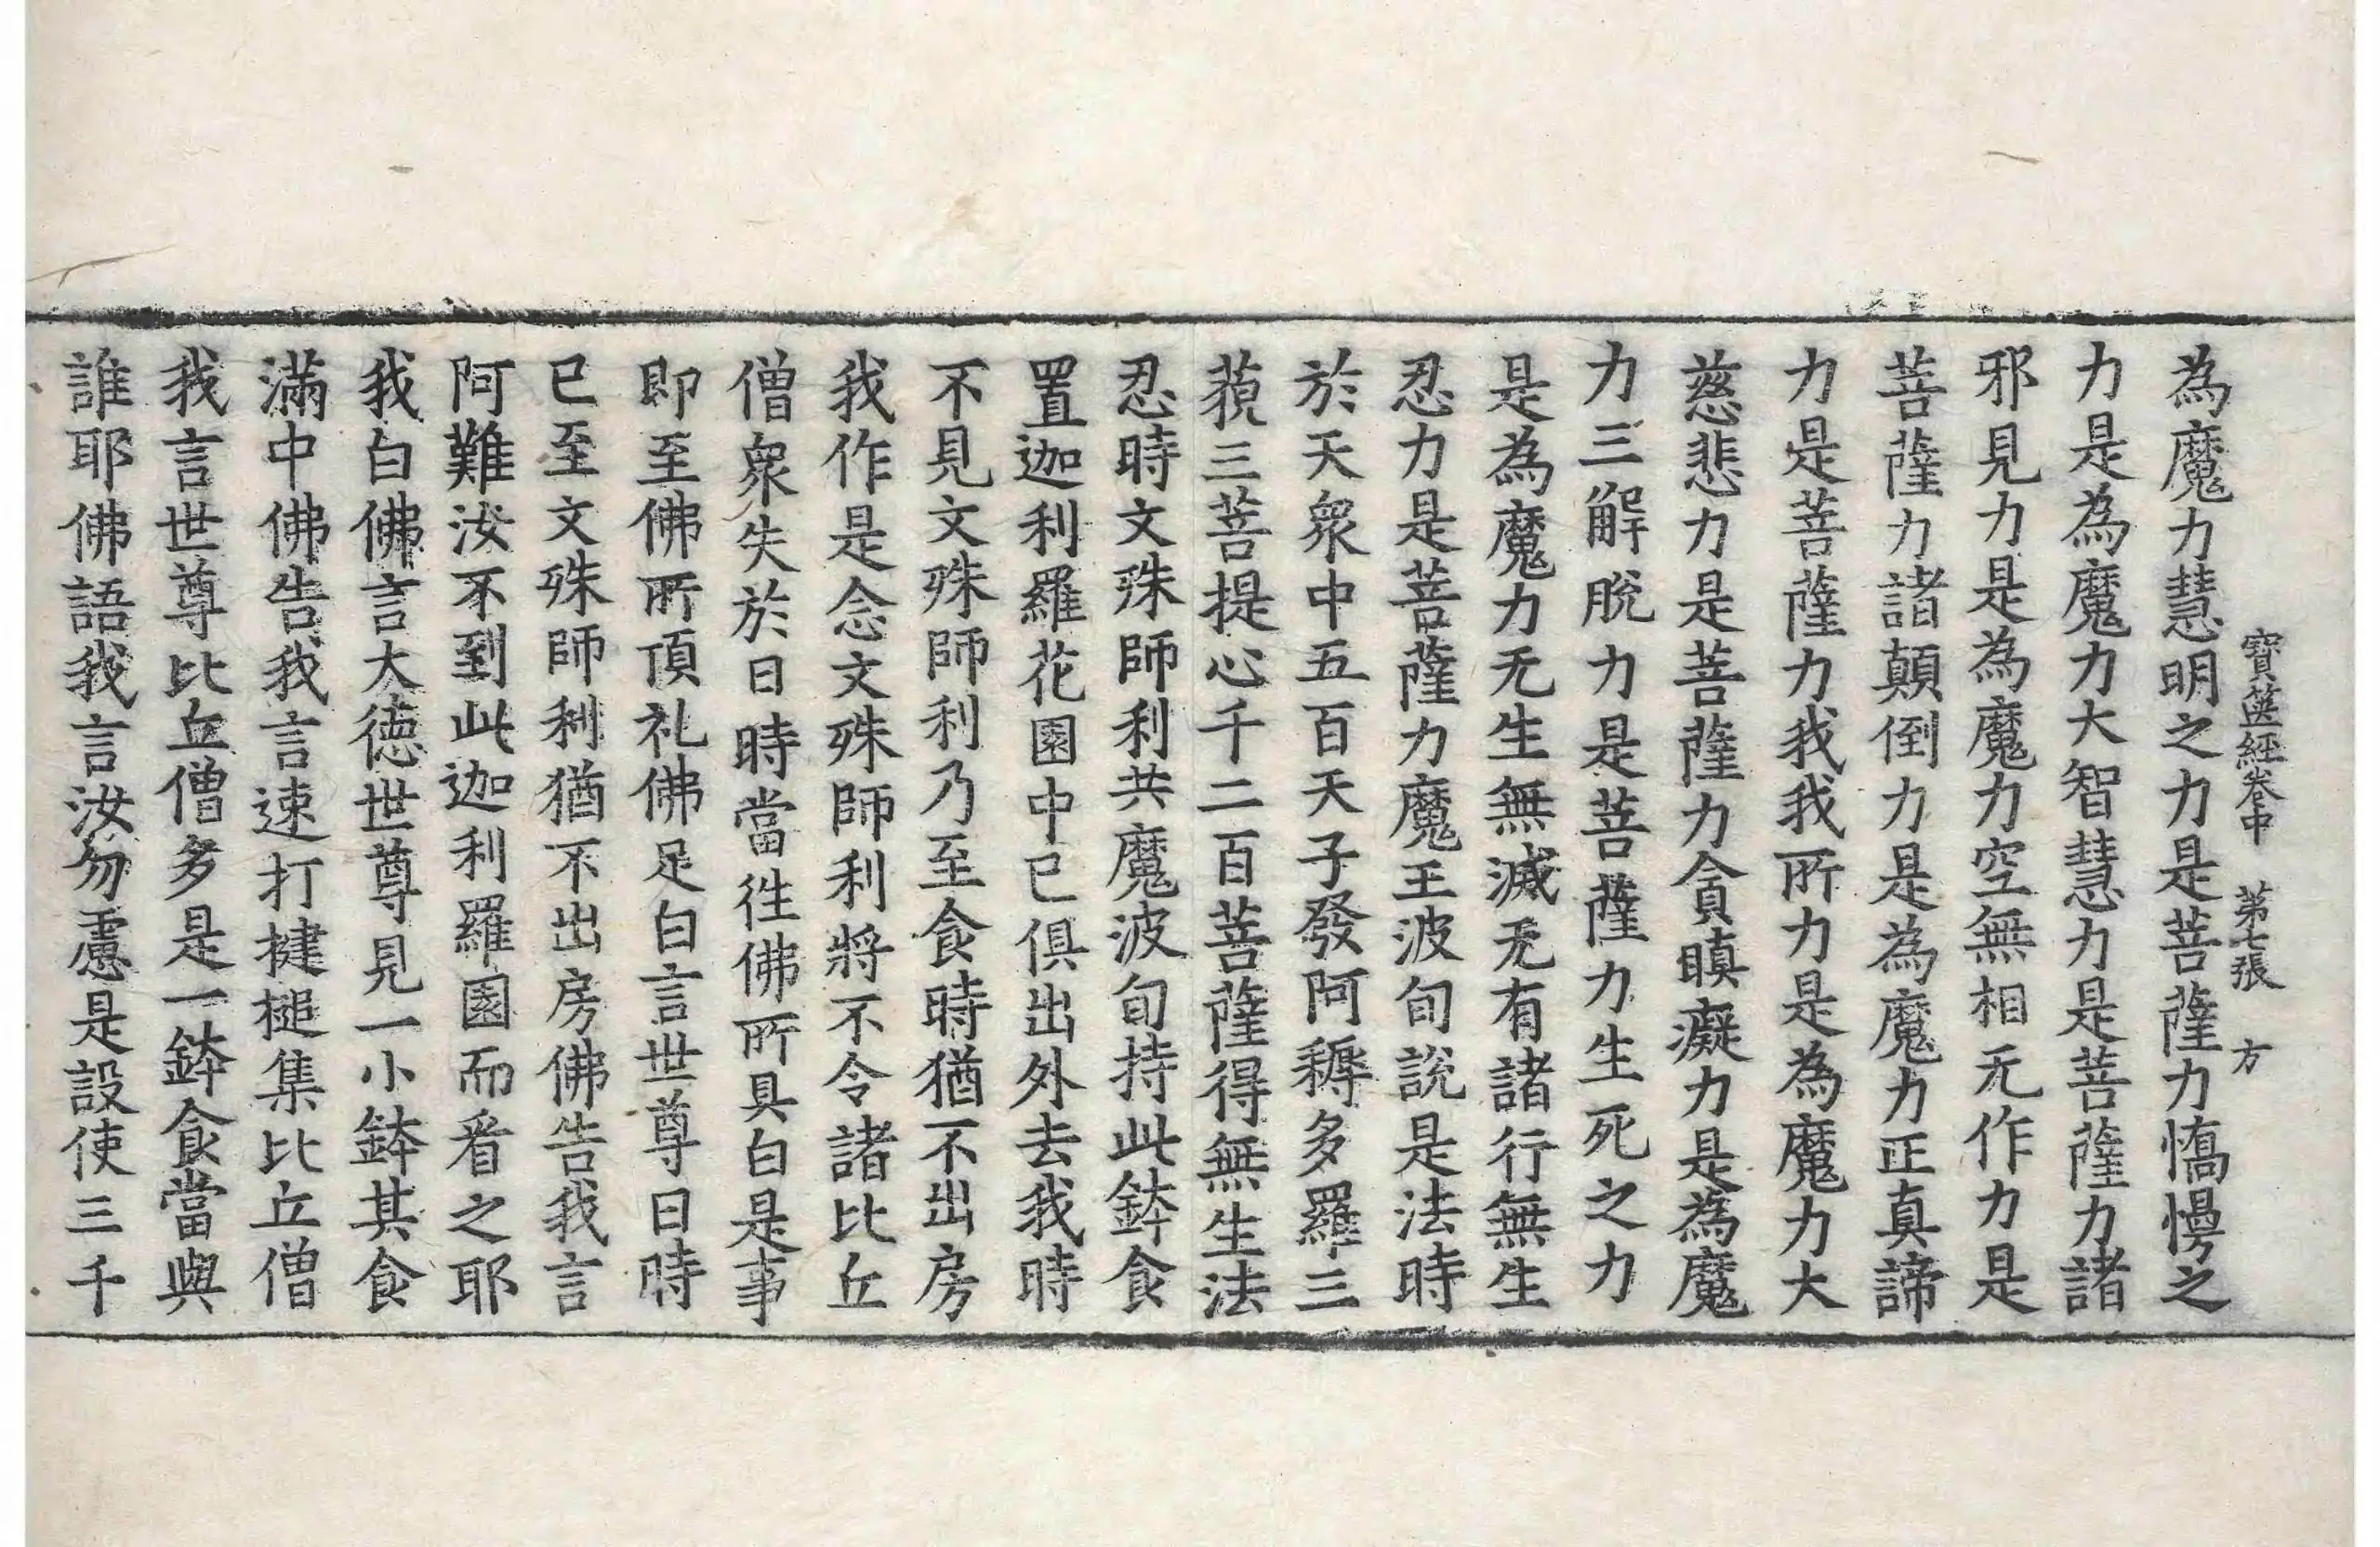 寶篋經卷中 第七張 方
為魔力慧明之力是菩薩力憍慢之
力是為魔力大智慧力是菩薩力諸
邪見力是為魔力空無相无作力是
菩薩力諸顛倒力是為魔力正真諦
力是菩薩力我我所力是為魔力大
慈悲力是菩薩力貪瞋癡力是為魔
力三解脫力是菩薩力生死之力
是為魔力无生無滅无有諸行無生
忍力是菩薩力魔王波旬說是法時
於天衆中五百天子發阿耨多羅三
藐三菩提心千二百菩薩得無生法
忍時文殊師利共魔波旬持此鉢食
置迦利羅花園中已俱出外去我時
不見文殊師利乃至食時猶不出房
我作是念文殊師利將不令諸比丘
僧衆失於日時當徃佛所具白是事
即至佛所頂礼佛足白言世尊日時
已至文殊師利猶不出房佛告我言
阿難汝不到此迦利羅園而看之耶
我白佛言大德世尊見一小鉢其食
滿中佛告我言速打揵槌集比丘僧
我言世尊比丘僧多是一鉢食當與
誰耶佛語我言汝勿慮是設使三千